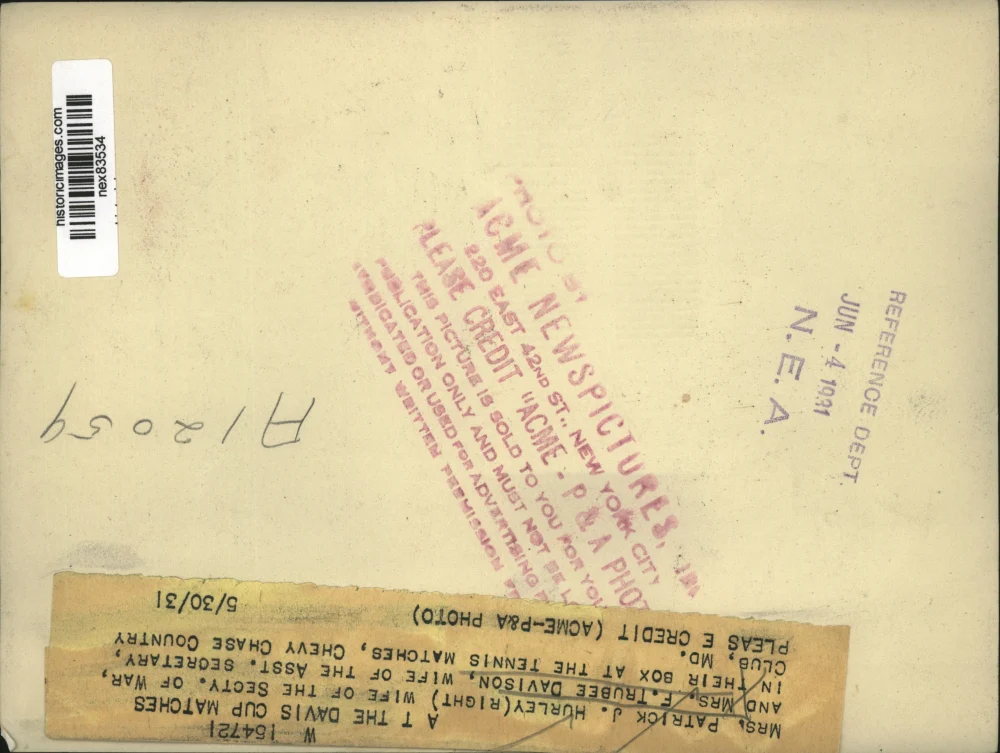 historicimages.com
nex83534
ACME NEWSPICTURES,
220 EAST 42ND ST., NEW YORK CITY
PLEASE CREDIT "ACME - P & A PHOTO
THIS PICTURE IS SOLD TO YOU FOR YOUR
PUBLICATION ONLY AND MUST NOT BE
SYNDICATED OR USED FOR ADVERTISING
WITHOUT WRITTEN PERMISSION
REFERENCE DEPT.
JUN - 4 1931
N. E. A.
A12059
W 154721
A T THE DAVIS CUP MATCHES
MRS. PATRICK J. HURLEY(RIGHT) WIFE OF THE SECTY. OF WAR,
AND MRS. F.TRUBEE DAVISON, WIFE OF THE ASST. SECRETARY,
IN THEIR BOX AT THE TENNIS MATCHES, CHEVY CHASE COUNTRY
CLUB, MD.
PLEAS E CREDIT (ACME-P&A PHOTO) 5/30/31